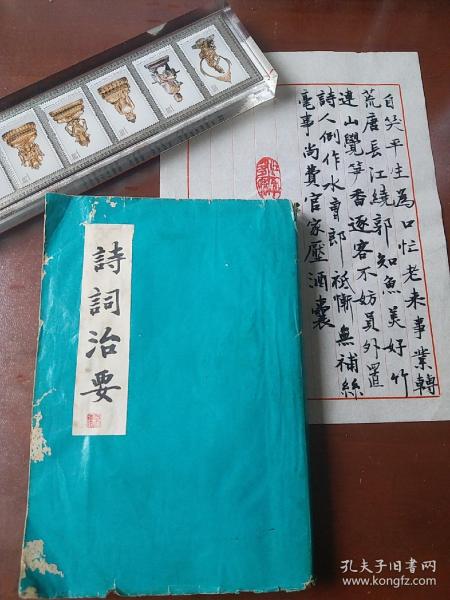 自笑平生為口忙老来事業轉
荒唐長江繞郭知魚美好竹
連山覺筍香逐客不妨員外置
詩人例作水曹郎祗慚無補絲
毫事尚費官家壓酒囊
詩詞治要
孔夫子旧书网
www.kongfz.com